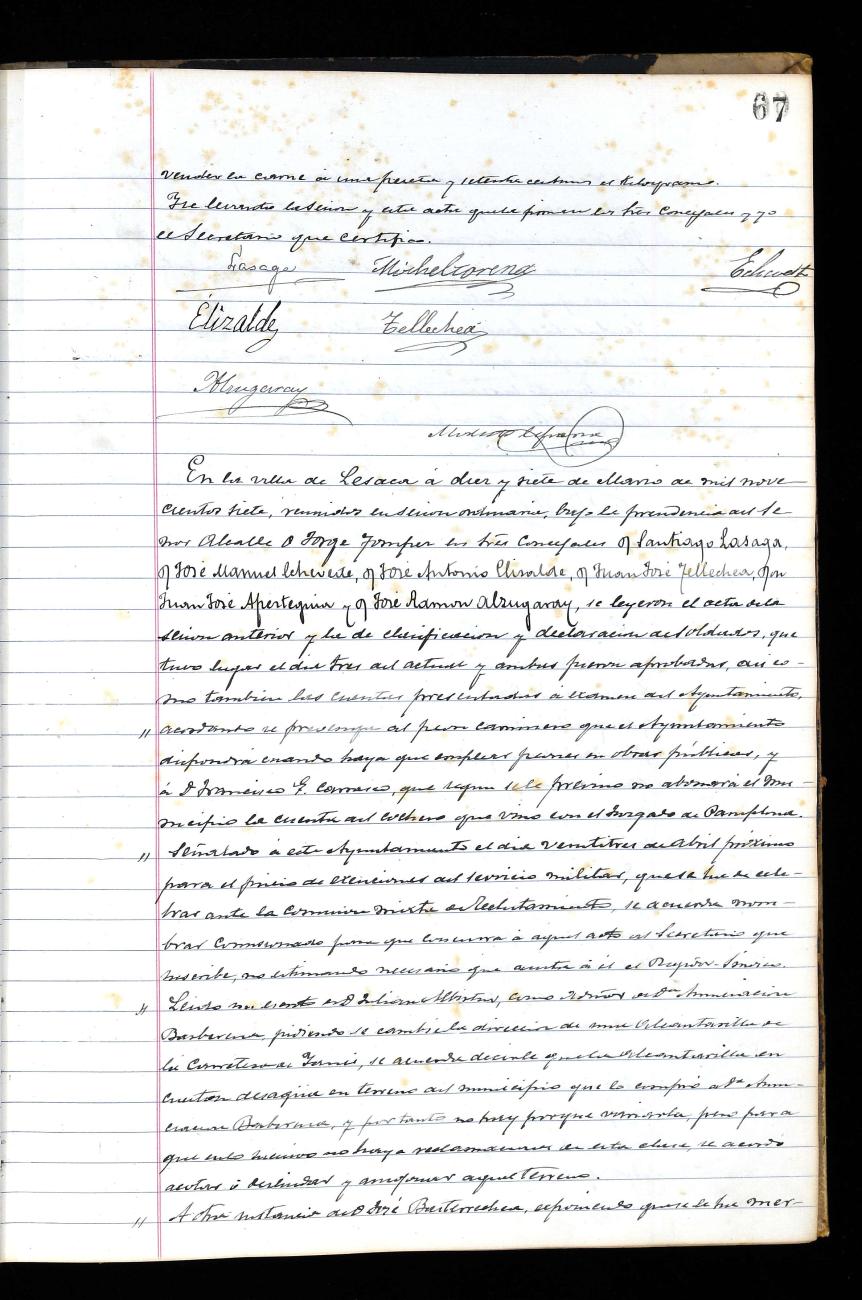 67
vender la carne á una peseta y setenta centimos el kilogramo.
Fue levantada la sesion y esta acta queda firman los tres Concejales y yo
el Secretario que certifico.
Lasaga Micheltorena Echeverte
Elizalde Tellechea
Alzugaray
Modesto
En la villa de Lesaca á diez y siete de Marzo de mil nove-
cientos siete, reunidos en sesion ordinaria, bajo la presidencia del Se-
ñor Alcalde D Jorge los tres Concejales D Santiago Lasaga,
D José Manuel Echeverte, D José Antonio Elizalde, D Juan José Tellechea, don
Juan José Apesteguia y D José Ramon Alzugaray, se leyeron el acta de la
sesion anterior y la de clasificacion y declaracion de soldados, que
tuvo lugar el dia tres del actual y ambas fueron aprobadas, asi co-
mo tambien las cuentas presentadas á examen del Ayuntamiento,
" acordando se prevenga al peon caminero que el Ayuntamiento
dispondrá cuando haya que emplear peones en obras públicas, y
á D Francisco G. Carrasco, que segun se le previno no abonará el Mu-
nicipio la cuenta del cochero que vino con el Juzgado de Pamplona.
" Señalado á este Ayuntamiento el dia veintitres de Abril próximo
para el juicio de exenciones del servicio militar, que se ha de cele-
brar ante la Comision mixta de Reclutamiento, se acuerda nom-
brar comisionado para que concurra á aquel acto al Secretario que
suscribe, no estimando necesario que asista á él el Regidor-Síndico.
" Leido un escrito de D Julian, como de Dª Anunciacion
Barberena, pidiendo se cambie la direccion de una Alcantarilla de
la Carretera de Yanci, se acuerda decirle que la Alcantarilla en
cuestion desagua en terreno del municipio que lo compró á Dª Anun-
ciacion Barberena, y por tanto no hay porque variarla, pero para
que en lo sucesivo no haya reclamaciones de esta clase, se acordó
acotar ó deslindar y amojonar aquel terreno.
" A otra instancia de D José Basterrechea, exponiendo que se le ha mer-